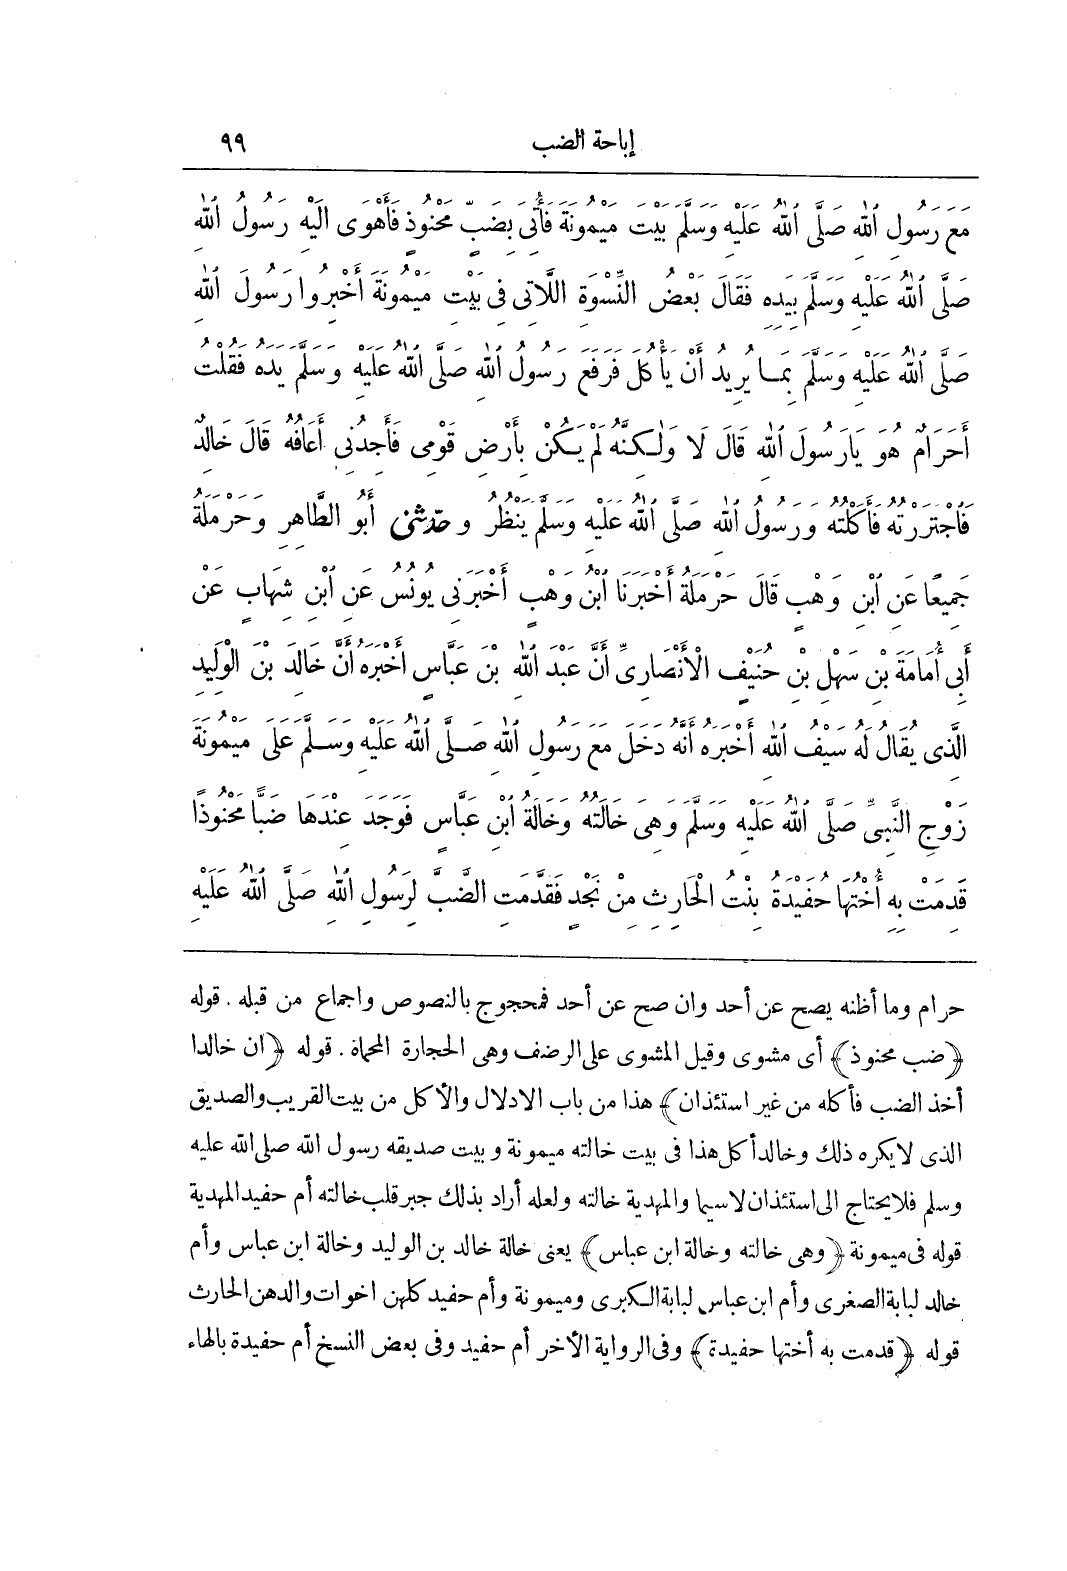 إباحة الضب ٩٩
مَعَ رَسُولِ اللهِ صَلَّى اللهُ عَلَيْهِ وَسَلَّمَ بَيْتَ مَيْمُونَةَ فَأُتِىَ بِضَبٍّ مَحْنُوذٍ فَأَهْوَى الَيْهِ رَسُولُ اللهِ
صَلَّى اللهُ عَلَيْهِ وَسَلَّمَ بِيَدِهِ فَقَالَ بَعْضُ النِّسْوَةِ اللَّاتِى فِى بَيْتِ مَيْمُونَةَ أَخْبِرُوا رَسُولَ اللهِ
صَلَّى اللهُ عَلَيْهِ وَسَلَّمَ بِمَا يُرِيدُ أَنْ يَأْكُلَ فَرَفَعَ رَسُولُ اللهِ صَلَّى اللهُ عَلَيْهِ وَسَلَّمَ يَدَهُ فَقُلْتُ
أَحَرَامٌ هُوَ يَارَسُولَ اللهِ قَالَ لَا وَلٰكِنَّهُ لَمْ يَكُنْ بِأَرْضِ قَوْمِى فَأَجِدُنِى أَعَافُهُ قَالَ خَالِدٌ
فَاجْتَرَرْتُهُ فَأَكَلْتُهُ وَرَسُولُ اللهِ صَلَّى اللهُ عَلَيْهِ وَسَلَّمَ يَنْظُرُ و حَدَّثَنِى أَبُو الطَّاهِرِ وَحَرْمَلَةُ
جَمِيعًا عَنِ ابْنِ وَهْبٍ قَالَ حَرْمَلَةُ أَخْبَرَنَا ابْنُ وَهْبٍ أَخْبَرَنِى يُونُسُ عَنِ ابْنِ شِهَابٍ عَنْ
أَبِى أُمَامَةَ بْنِ سَهْلِ بْنِ حُنَيْفٍ الْأَنْصَارِىِّ أَنَّ عَبْدَ اللهِ بْنَ عَبَّاسٍ أَخْبَرَهُ أَنَّ خَالِدَ بْنَ الْوَلِيدِ
الَّذِى يُقَالُ لَهُ سَيْفُ اللهِ أَخْبَرَهُ أَنَّهُ دَخَلَ مَعَ رَسُولِ اللهِ صَلَّى اللهُ عَلَيْهِ وَسَلَّمَ عَلَى مَيْمُونَةَ
زَوْجِ النَّبِىِّ صَلَّى اللهُ عَلَيْهِ وَسَلَّمَ وَهِىَ خَالَتُهُ وَخَالَةُ ابْنِ عَبَّاسٍ فَوَجَدَ عِنْدَهَا ضَبًّا مَحْنُوذًا
قَدِمَتْ بِهِ أُخْتُهَا حُفَيْدَةُ بِنْتُ الْحَارِثِ مِنْ نَجْدٍ فَقَدَّمَتِ الضَّبَّ لِرَسُولِ اللهِ صَلَّى اللهُ عَلَيْهِ
حرام وما أظنه يصح عن أحد وان صح عن أحد فمحجوج بالنصوص واجماع من قبله . قوله
﴿ضب محنوذ﴾ أى مشوى وقيل المشوى على الرضف وهى الحجارة المحماة . قوله ﴿ان خالدا
أخذ الضب فأكله من غير استئذان﴾ هذا من باب الادلال والأكل من بيت القريب والصديق
الذى لا يكره ذلك وخالد أكل هذا فى بيت خالته ميمونة وبيت صديقه رسول الله صلى الله عليه
وسلم فلا يحتاج الى استئذان لاسيما والمهدية خالته ولعله أراد بذلك جبر قلب خالته أم حفيد المهدية
قوله فى ميمونة ﴿وهى خالته وخالة ابن عباس﴾ يعنى خالة خالد بن الوليد وخالة ابن عباس وأم
خالد لبابة الصغرى وأم ابن عباس لبابة الكبرى وميمونة وأم حفيد كلهن اخوات والدهن الحارث
قوله ﴿قدمت به أختها حفيدة﴾ وفى الرواية الأخر أم حفيد وفى بعض النسخ أم حفيدة بالهاء